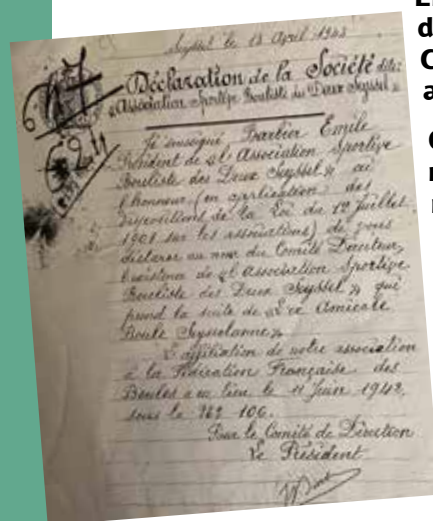 Seyssel le 13 April 1943
Déclaration de la Société dite:
« Association Sportive Bouliste des Deux Seyssel »
Je soussigné Barbier Emile
Président de « l'Association Sportive
Bouliste des Deux Seyssel » ai
l'honneur (en application des
dispositions de la Loi du 1er Juillet
1901 sur les associations) de vous
déclarer au nom du Comité Directeur,
l'existence de « l'Association Sportive
Bouliste des Deux Seyssel » qui
prend la suite de « L'Amicale
Boule Seysselanne »
L'affiliation de notre association
à la Fédération Française des
Boules a eu lieu le 11 Juin 1942,
sous le N° 106.
Pour le Comité de Direction
Le Président